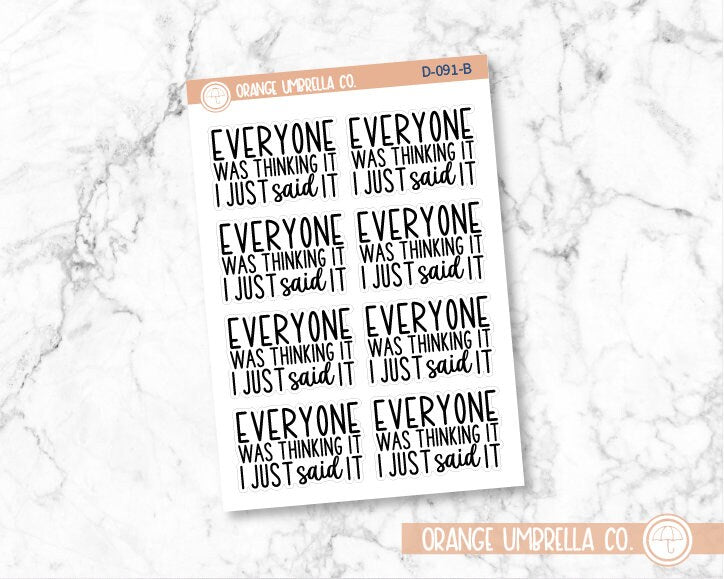 ORANGE UMBRELLA CO.
D-091-B
EVERYONE
WAS THINKING IT
I JUST said IT
EVERYONE
WAS THINKING IT
I JUST said IT
EVERYONE
WAS THINKING IT
I JUST said IT
EVERYONE
WAS THINKING IT
I JUST said IT
EVERYONE
WAS THINKING IT
I JUST said IT
EVERYONE
WAS THINKING IT
I JUST said IT
EVERYONE
WAS THINKING IT
I JUST said IT
EVERYONE
WAS THINKING IT
I JUST said IT
ORANGE UMBRELLA CO.